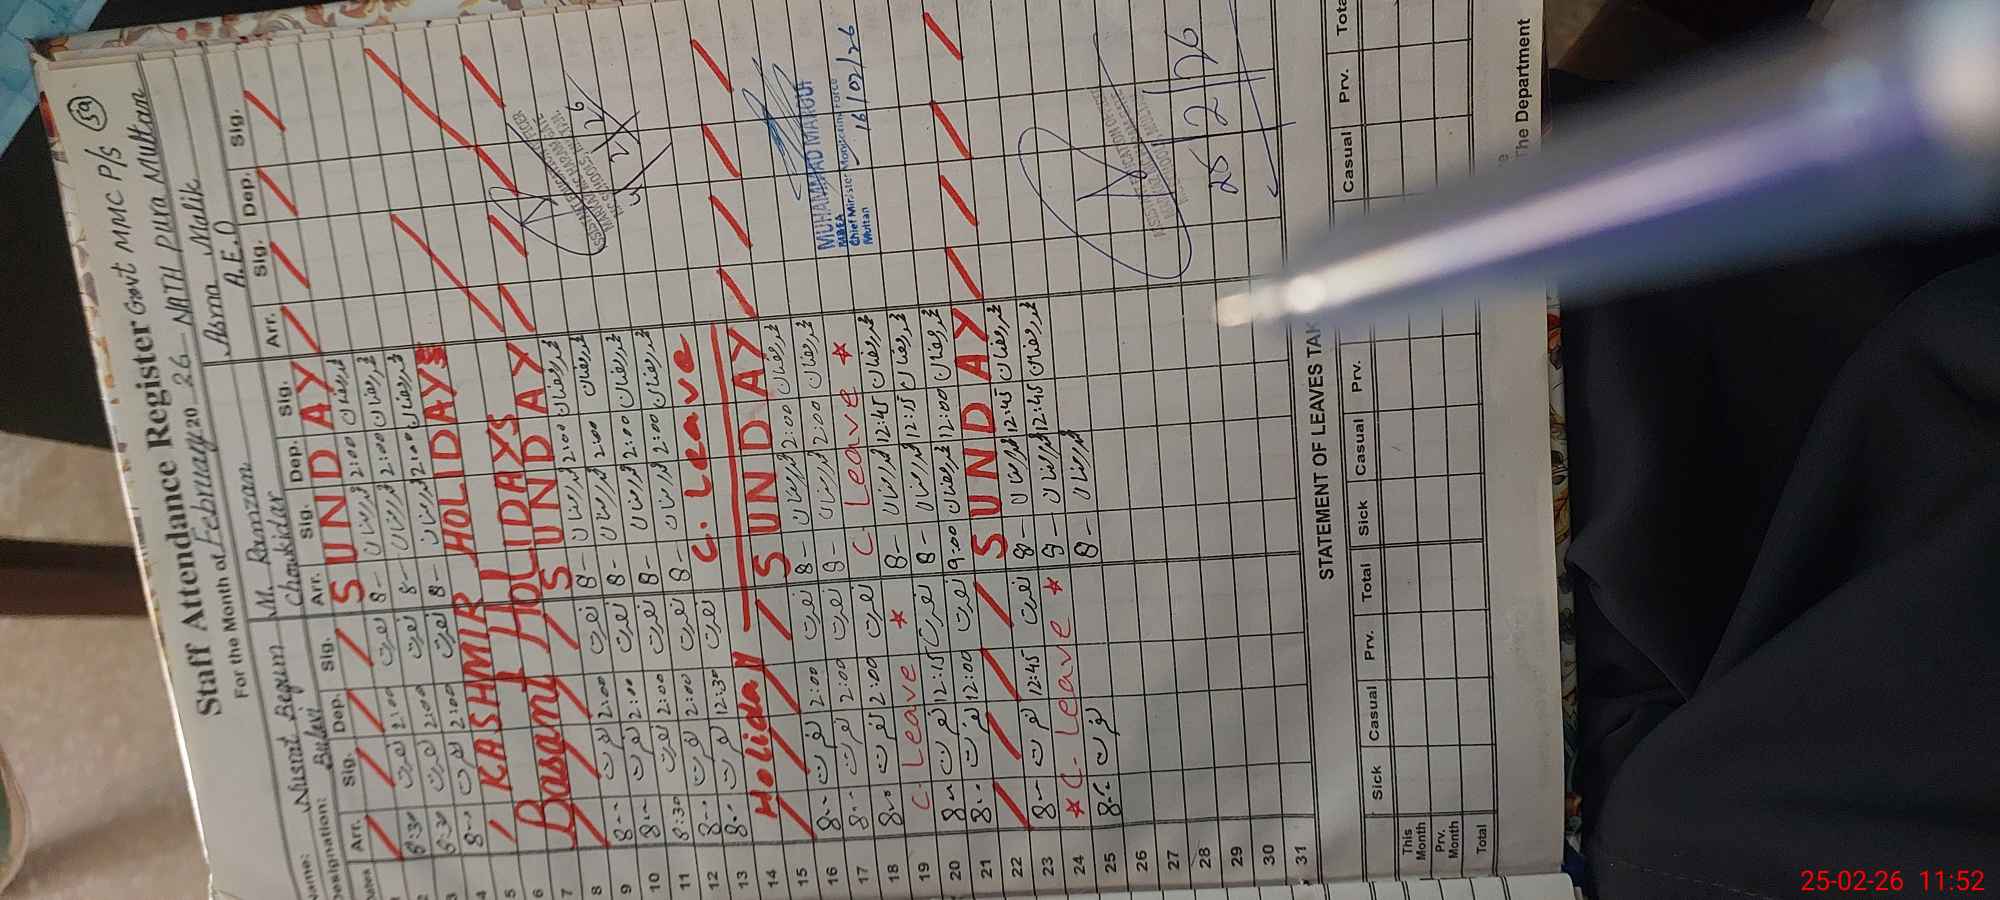 59
Staff Attendance Register Govt MMC P/S
For the Month of February 2026 NATH PURA Multan
Name: Nusrat Begum M. Ramzan Asma Malik
Designation: Chowkidar A.E.O
Dates Arr. Sig. Dep. Sig. Arr. Sig. Dep. Sig. Arr. Sig. Dep. Sig.
1 SUNDAY
2 8:30 نصرت 2:00 نصرت 8- محمد رمضان 2:00 محمد رمضان
3 8:30 نصرت 2:00 نصرت 8- محمد رمضان 2:00 محمد رمضان
4 8:00 نصرت 2:00 نصرت 8- محمد رمضان 2:00 محمد رمضان
5 KASHMIR HOLIDAYS
6
7 Basant HOLIDAYS
8 SUNDAY
9 8:00 نصرت 2:00 نصرت 8- محمد رمضان 2:00 محمد رمضان
10 8:00 نصرت 2:00 نصرت 8- محمد رمضان 2:00 محمد رمضان
11 8:30 نصرت 2:00 نصرت 8- محمد رمضان 2:00 محمد رمضان
12 8:00 نصرت 2:00 نصرت 8- محمد رمضان 2:00 محمد رمضان
13 8:00 نصرت 12:30 نصرت C. Leave
14 Holiday
15 SUNDAY
16 8:00 نصرت 2:00 نصرت 8- محمد رمضان 2:00 محمد رمضان
17 8:00 نصرت 2:00 نصرت 8- محمد رمضان 2:00 محمد رمضان
18 8:00 نصرت 2:00 نصرت C. Leave
19 C. Leave 8- محمد رمضان 12:45 محمد رمضان
20 8:00 نصرت 12:15 نصرت 8- محمد رمضان 12:15 محمد رمضان
21 8:00 نصرت 12:00 نصرت 9:00 محمد رمضان 12:00 محمد رمضان
22 SUNDAY
23 8- نصرت 12:45 نصرت 8- محمد رمضان 12:45 محمد رمضان
24 C. Leave 8- محمد رمضان 12:45 محمد رمضان
25 8:00 نصرت 8- محمد رمضان
26
27
28
29
30
31
MUHAMMAD MAROOF
M&EA
Chief Minister Monitoring Force
Multan
16/02/26
25/2/26
STATEMENT OF LEAVES TAK
Sick Casual Prv. Total Sick Casual Prv. Casual Prv. Tota
This Month
Prv. Month
Total
The Department
25-02-26 11:52